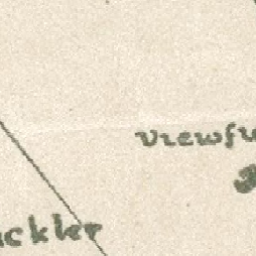 viewfu
ackler